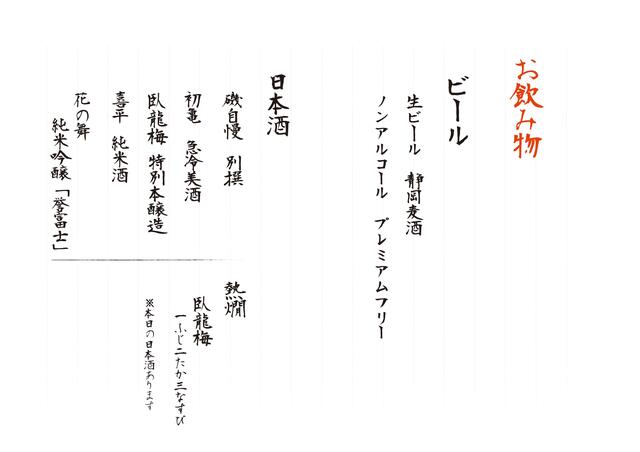 お飲み物
ビール
生ビール 静岡麦酒
ノンアルコール プレミアムフリー
日本酒
磯自慢 別撰
初亀 急冷美酒
臥龍梅 特別本醸造
喜平 純米酒
花の舞
純米吟醸「誉富士」
熱燗
臥龍梅
一ふじ二たか三なすび
※本日の日本酒あります